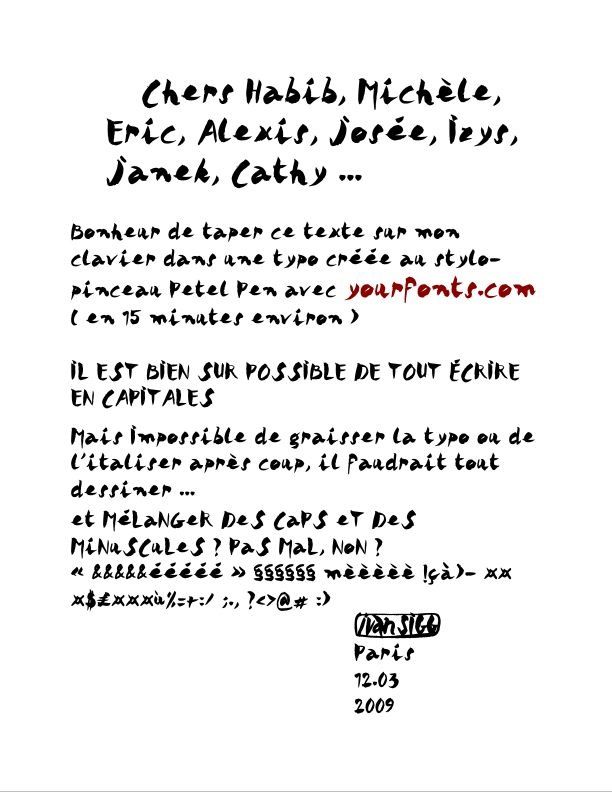 Chers Habib, Michèle,
Eric, Alexis, Josée, Izys,
Janek, Cathy ...
Bonheur de taper ce texte sur mon
clavier dans une typo créée au stylo-
pinceau Petel Pen avec yourfonts.com
( en 15 minutes environ )
IL EST BIEN SUR POSSIBLE DE TOUT ÉCRIRE
EN CAPITALES
Mais Impossible de graisser la typo ou de
l'italiser après coup, il faudrait tout
dessiner ...
et MéLaNGeR DeS CaPS eT DeS
MiNuSCuLeS ? PaS MaL, NoN ?
« &&&&&ééééé » §§§§§§ mèèèèè !çà)- ¤¤
¤$£¤¤¤ù%=+:/ ;., ?<>@# :)
ivan SIGG
Paris
12.03
2009